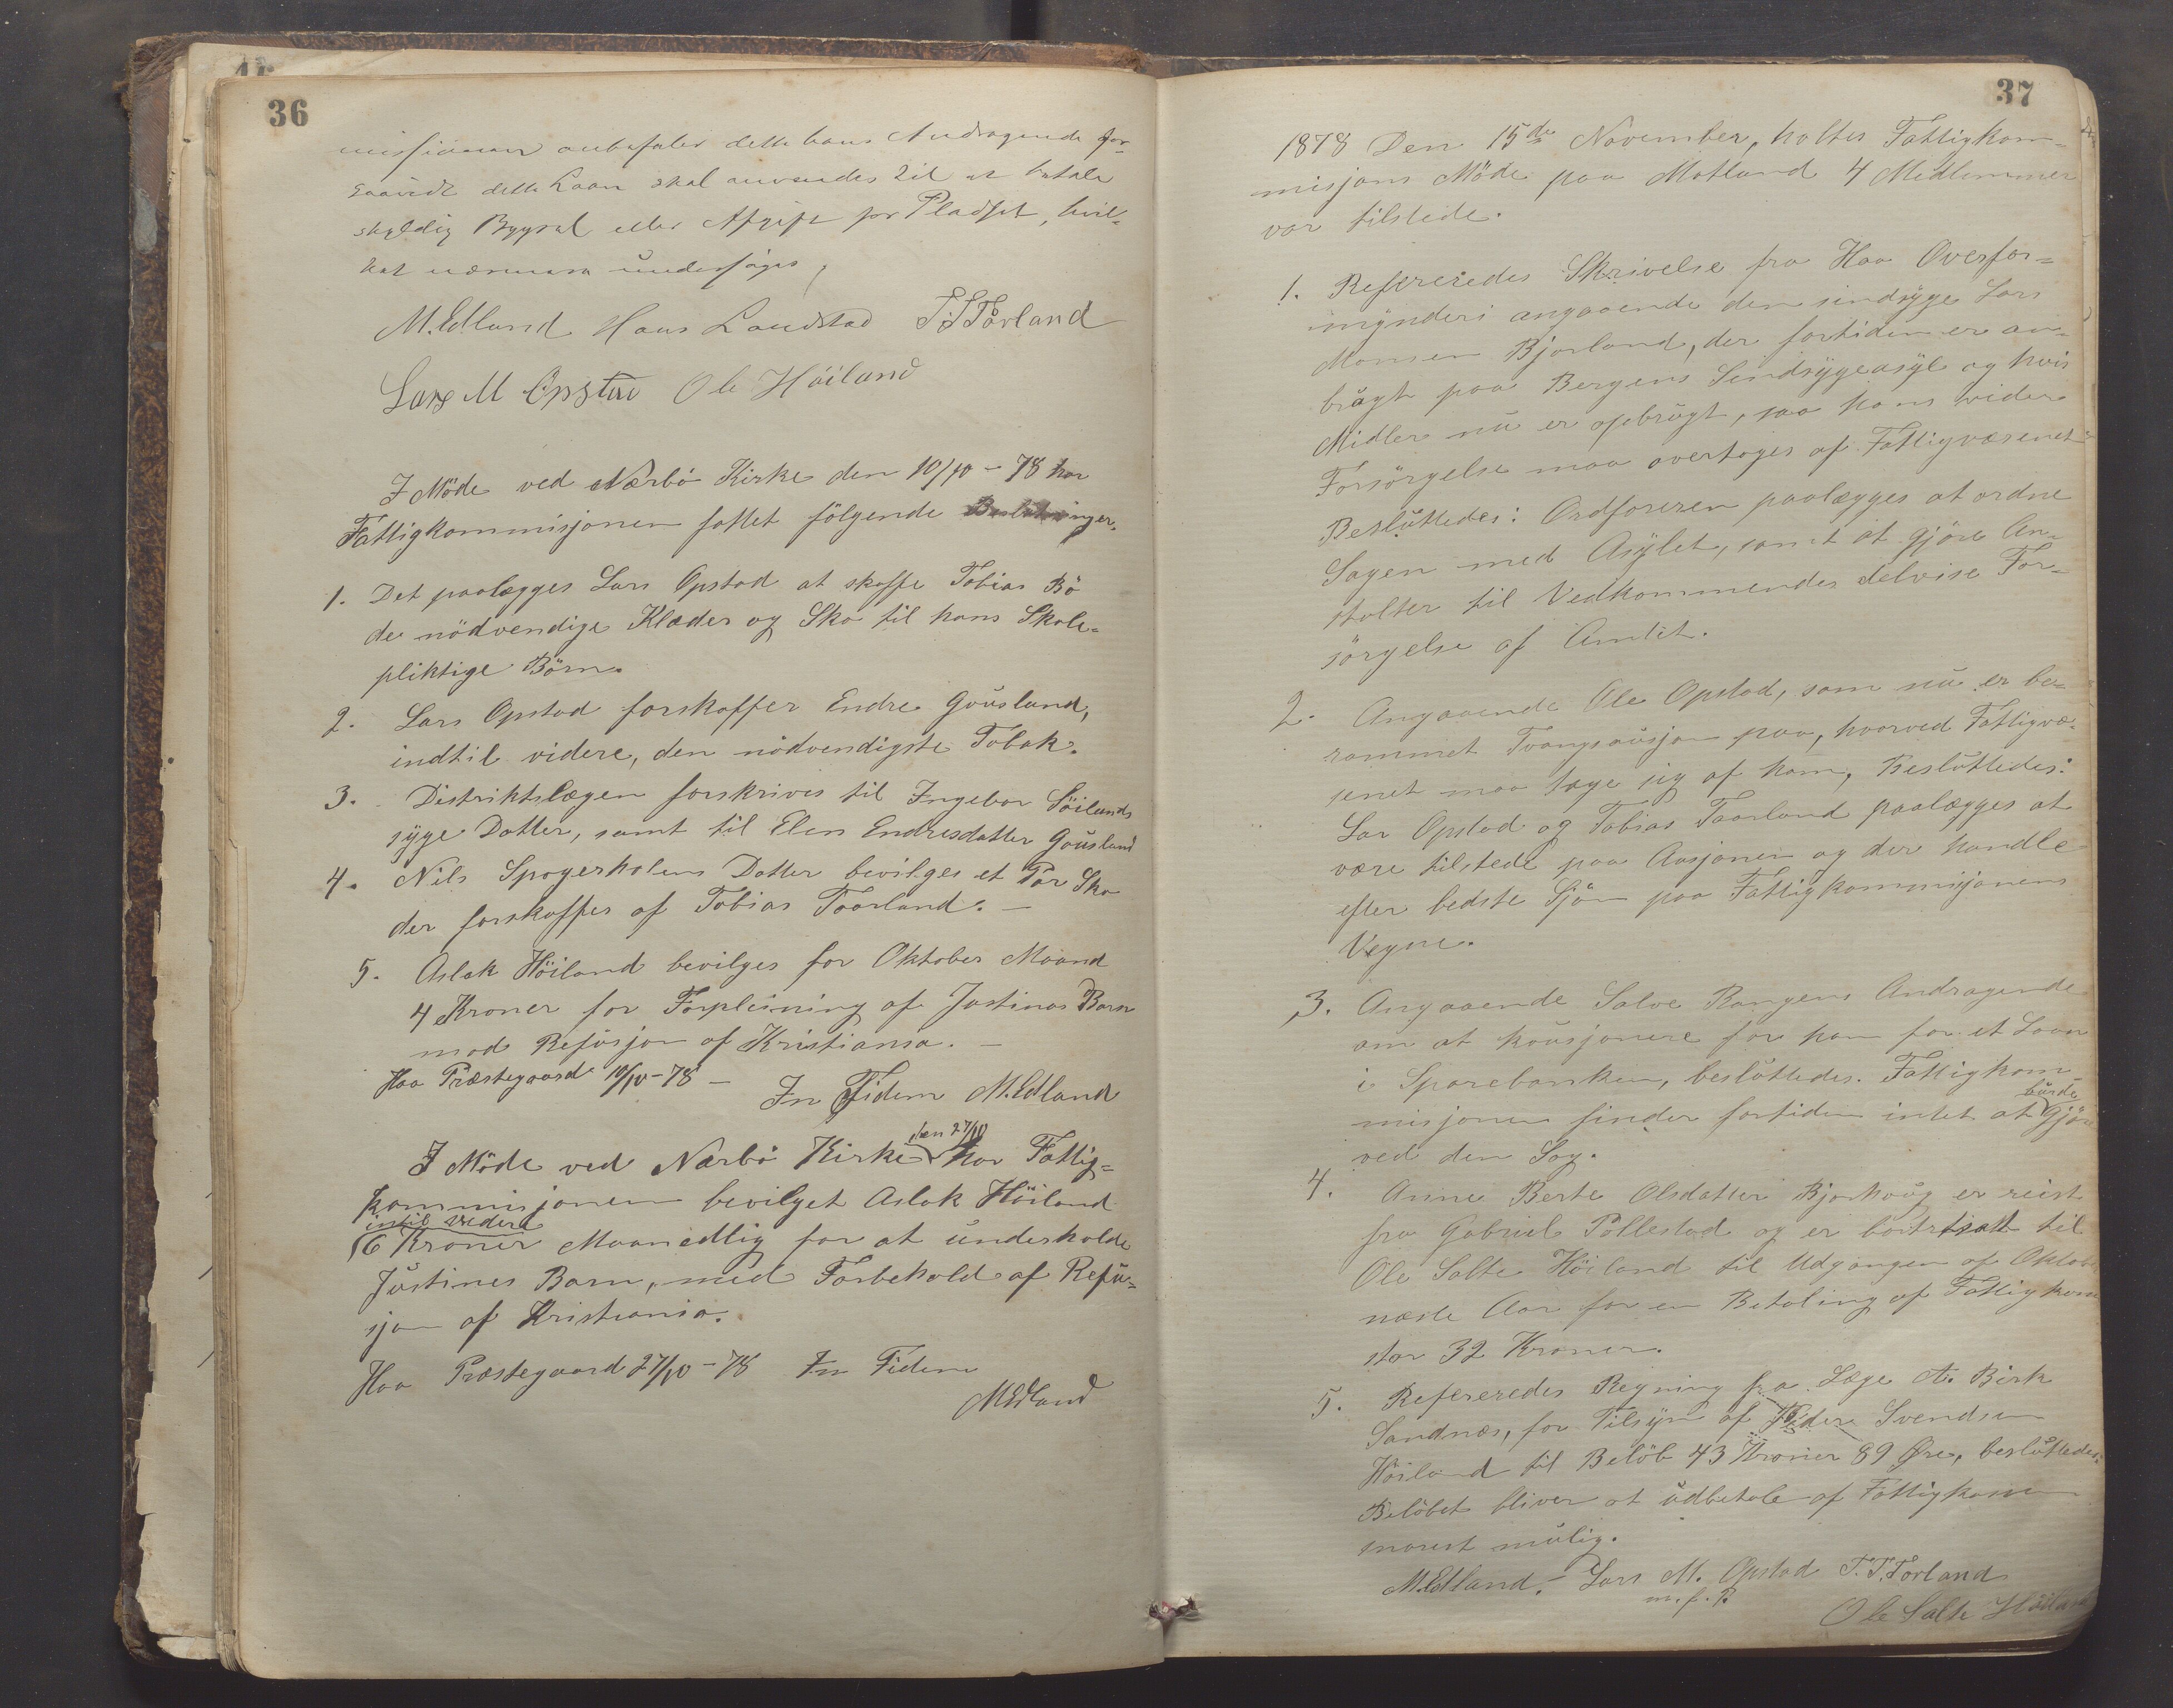 36
missionen anbefaler dette hans Andragende for-
saavidt dette Laan skal anvendes til at betale
skyldig Bygsel eller Afgift for Pladset, hvil-
ket nærmere undersøges,
M. Edland Hans Laudstad T. T Torland
Lars M Opstad Ole Höiland
I Möde ved Nærbö Kirke den 10/10 - 78 har
Fattigkommisjonen fattet fölgende Beslutninger.
1. Det paalægges Lars Opstad at skaffe Tobias Bö
de nödvendige Klæder og Sko til hans Skole-
pliktige Börn.
2. Lars Opstad forskaffer Endre Gousland,
indtil videre, den nödvendigste Tobak.
3. Distriktslægen forskrives til Ingebor Söilands
syge Datter, samt til Elen Endresdatter Gousland
4. Nils Spogerholens Datter bevilges et Par Sko
der forskaffes af Tobias Taarland. —
5. Aslak Höiland bevilges for Oktober Maaned
4 Kroner for Forpleining af Justinas Barn
mod Refusjon af Kristiania. —
Haa Præstegaard 10/10 - 78 —
In Fidem M. Edland
den 27/10
I Möde ved Nærbö Kirke har Fattig=
kommisjonen bevilget Aslak Höiland
intil videre
6 Kroner Maanedlig for at underholde
Justines Barn, med Forbehold af Refu=
sjon af Kristiania.
Haa Præstegaard 27/10 - 78 In Fidem
M Edland
37
1878 Den 15de November, holtes Fattigkom=
misjons Möde paa Motland 4 Medlemmer
var tilstede.
1. Refereredes Skrivelse fra Haa Overfor=
mynderi angaaende den sindsyge Lars
Monsen Bjorland, der fortiden er an-
bragt paa Bergens Sindsygeasyl og hvis
Midler nu er opbrugt, saa hans videre
Forsörgelse maa overtages af Fattigvæsenet
Besluttedes: Ordforeren paalægges at ordne
Sagen med Asylet, samt at gjöre An-
stalter til Vedkommendes delvise For-
sörgelse af Amtet.
2. Angaaende Ole Opstad, som nu er be-
rammet Tvangsausjon paa, hvorved Fattigvæ-
senet maa tage sig af ham, Besluttedes:
Lar Opstad og Tobias Taarland paalægges at
være tilstede paa Ausjonen og der handle
efter bedste Sjön paa Fattigkommisjonens
Vegne.
3. Angaaende Salve Rangens Andragende
om at kausjonere for ham for et Laan
i Sparebanken, besluttedes. Fattigkom-
misjonen finder fortiden intet at burde gjöre
ved den Sag.
4. Anne Berte Olsdatter Bjorhaug er reist
fra Gabriel Pollestad og er bortsatt til
Ole Salte Höiland til Udgangen af Oktober
næste Aar for en Betaling af Fattigkom
stor 32 Kroner.
5. Refereredes Regning fra Læge A. Birk
Sandnes, for Tilsyn af Peder Svendsen
Höiland til Belöb 43 Kroner 89 Øre, besluttedes:
Belöbet bliver at udbetale af Fattigkassen
snarest mulig.
M. Edland. — Lars M. Opstad T. T. Torland
m. f. P.
Ole Salte Höiland